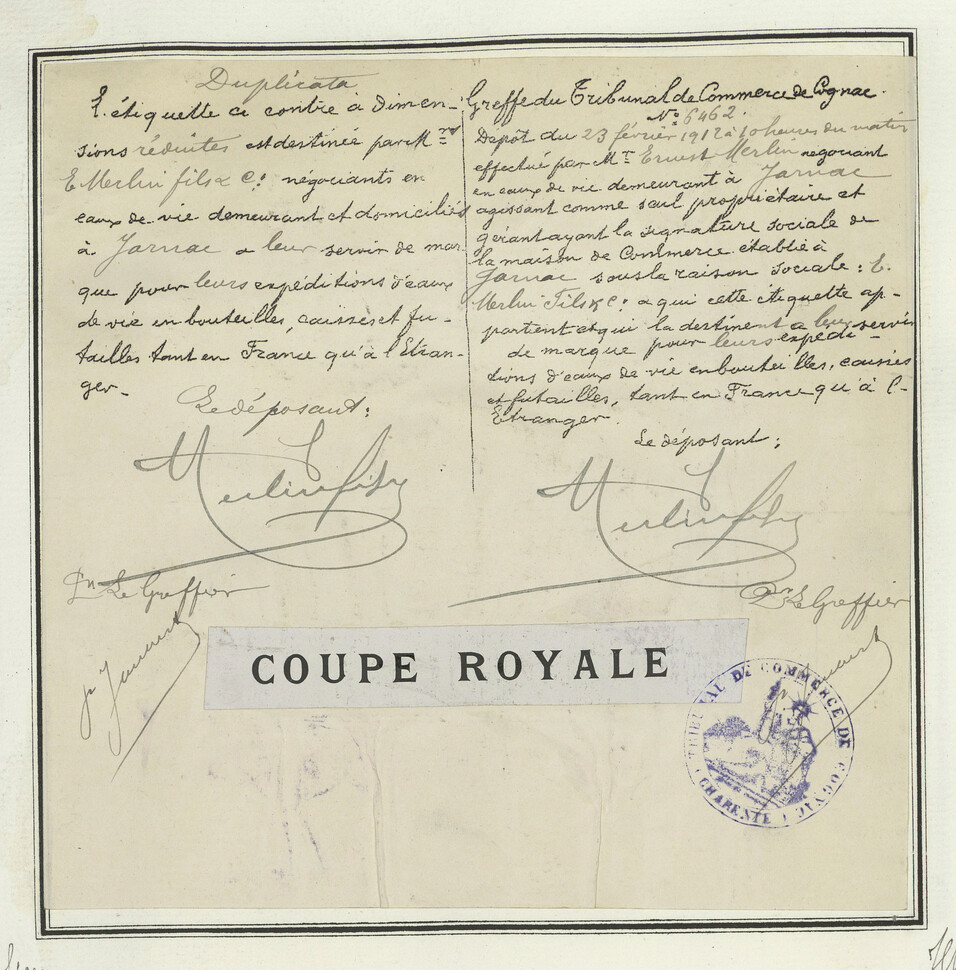 Duplicata
L'étiquette ci contre à dimen-
sions réduites est destinée par Mrs
E Merlin fils & Cie négociants en
eaux de vie demeurant et domiciliés
à Jarnac a leur servir de mar
que pour leurs expéditions d'eaux
de vie en bouteilles, caisses et fu-
tailles tant en France qu'à l'Etran-
ger-
Le déposant:
Merlin fils
Pn Le Greffier
Greffe du Tribunal de Commerce de Cognac.
No 6462.
Dépôt du 23 février 1912 à 10 heures du matin
effectué par Mr Ernest Merlin negociant
en eaux de vie demeurant à Jarnac
agissant comme seul propriétaire et
gérant ayant la signature sociale de
la maison de Commerce établie à
Jarnac sous la raison sociale: E.
Merlin Fils & Cie a qui cette étiquette ap-
partient et qui la destinent a leur servir
de marque pour leurs expédi-
tions d'eaux de vie en bouteilles, caisses
et futailles, tant en France qu'à l'-
Etranger.
Le déposant:
Merlin fils
Pn Le Greffier
COUPE ROYALE
TRIBUNAL DE COMMERCE DE COGNAC
CHARENTE